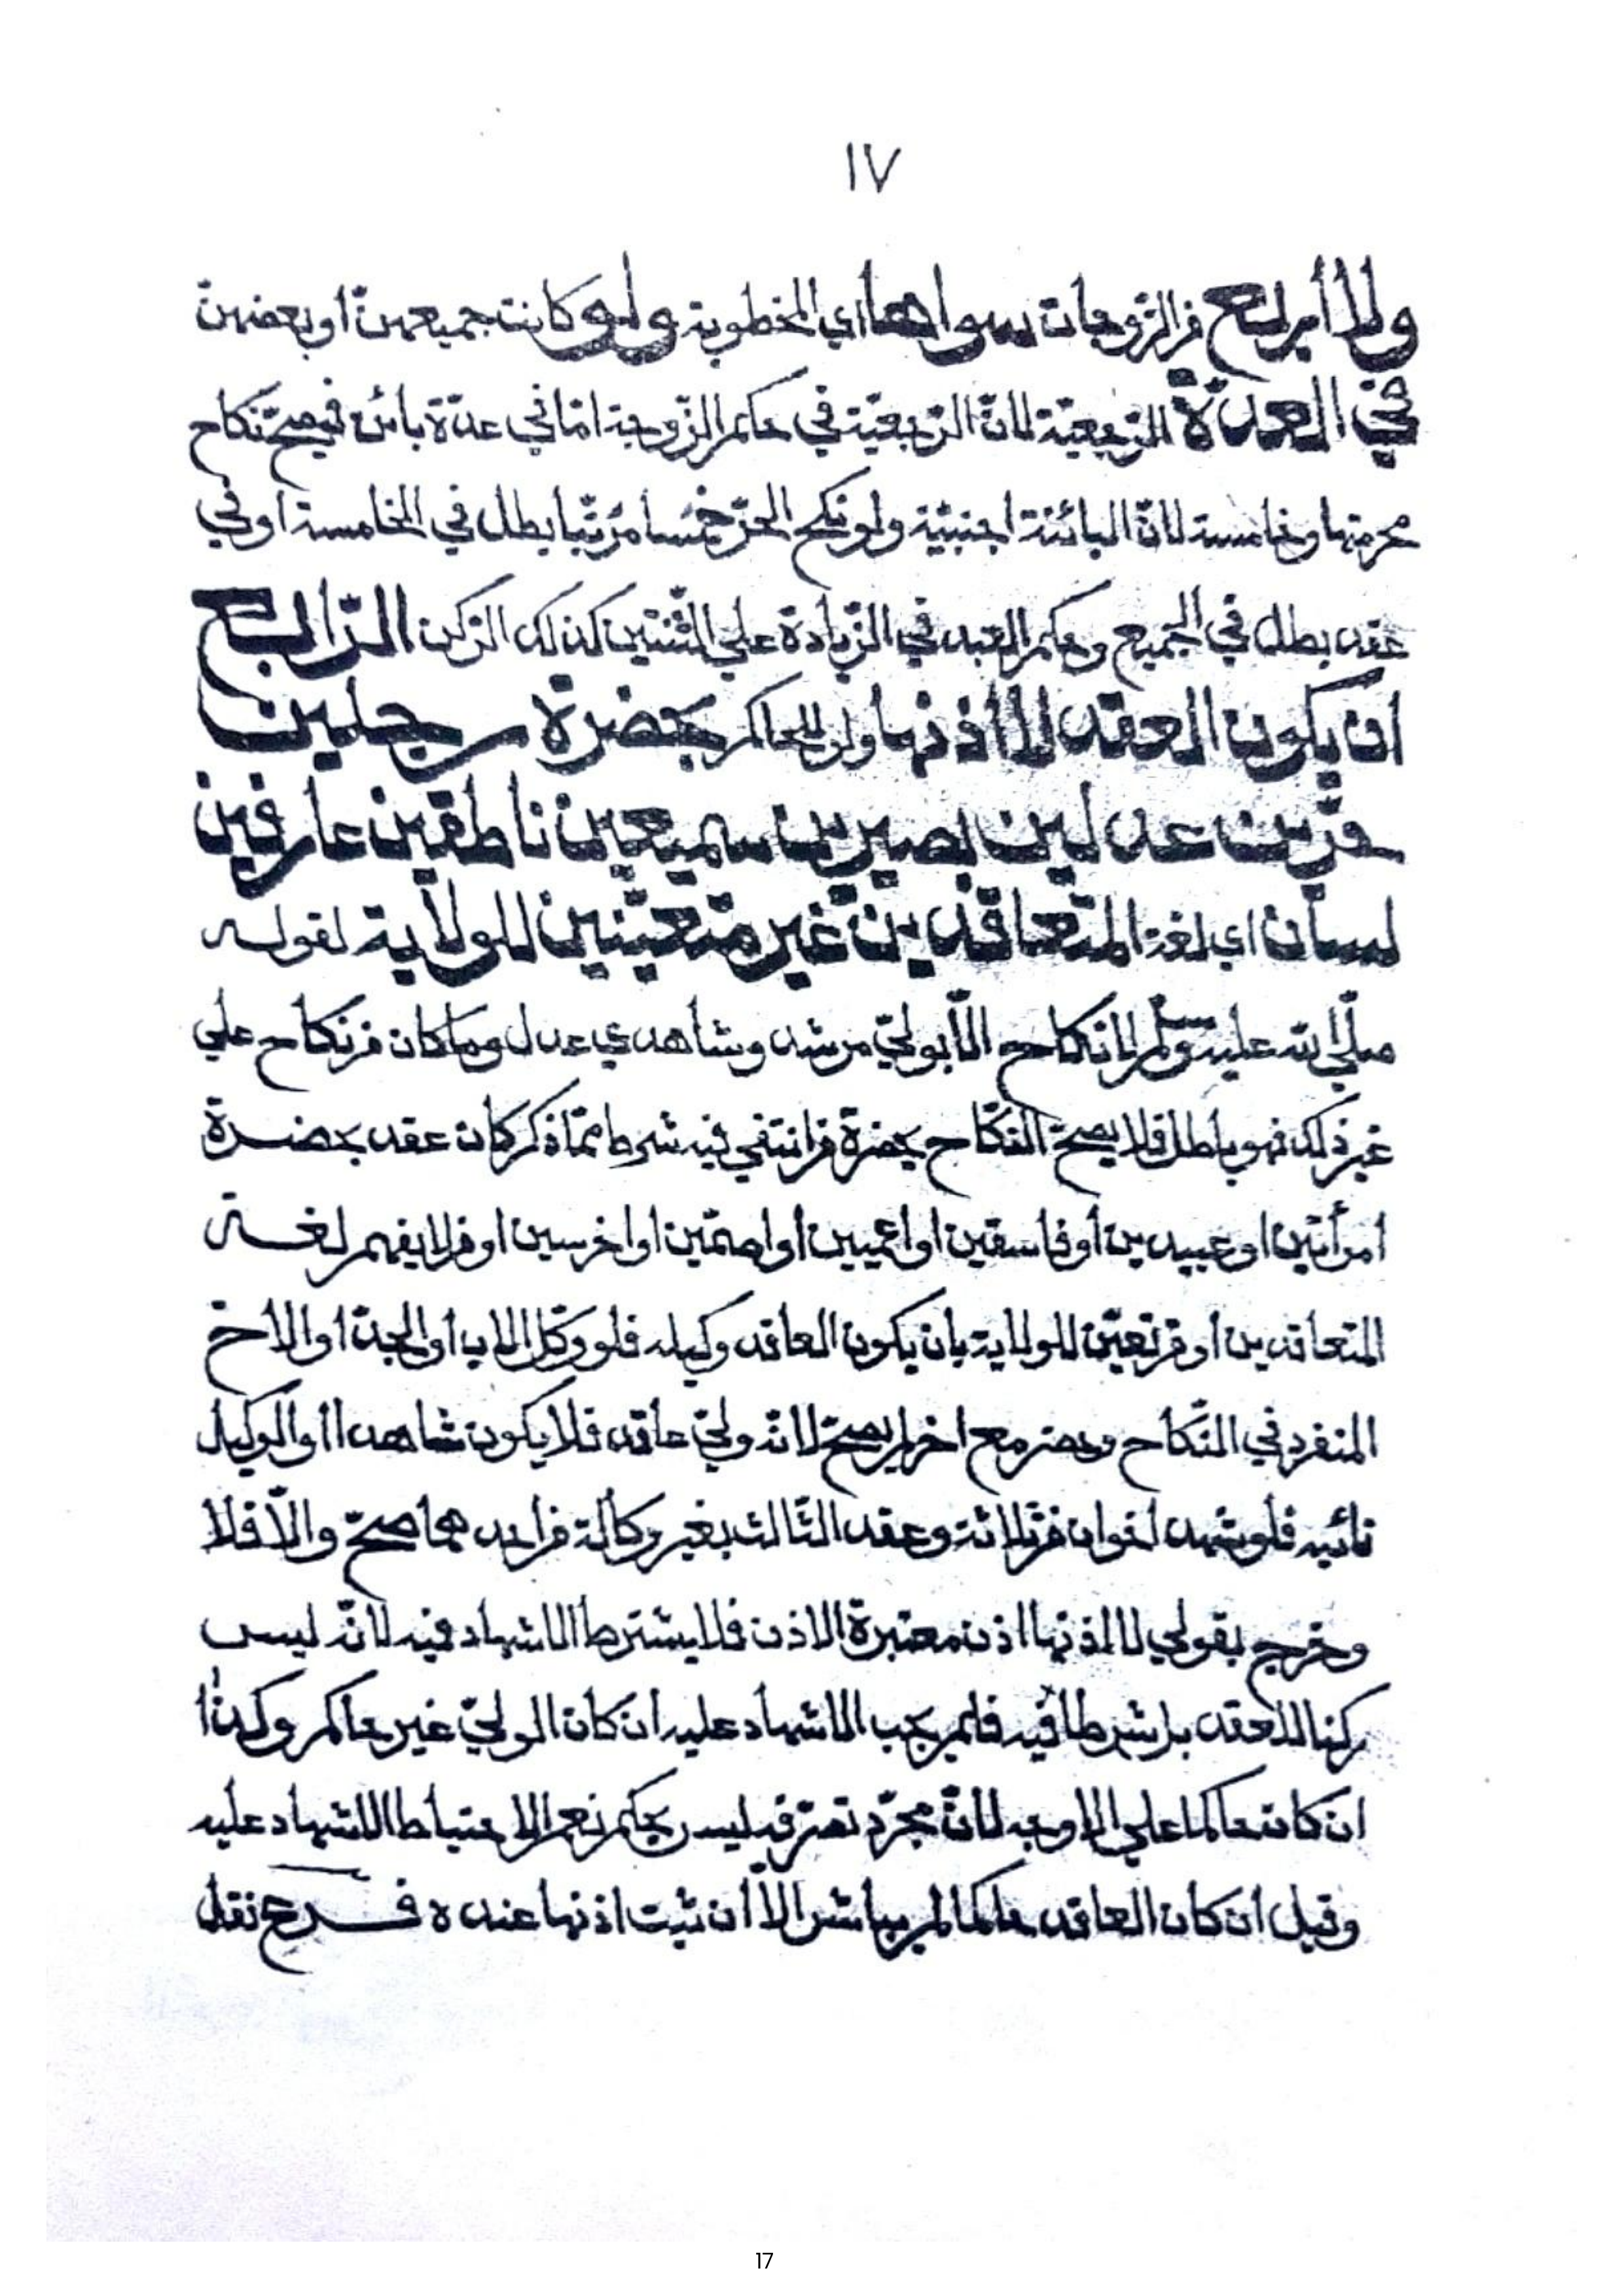 ١٧
ولا أربع من الزّوجات سواها اي المخطوبة ولو كانت جميعهنّ او بعضهنّ
في العدّة الرّجعيّة لانّ الرّجعيّة في حكم الزّوجة امّا في عدّة بائن فيصحّ نكاح
محرمتها وخامسة لانّ البائنة اجنبيّة ولو نكح الحرّ خمسا مرتّبا بطل في الخامسة او في
عقد بطل في الجميع وحكم العبد في الزّيادة على الثّنتين كذلك الرّكن الرّابع
ان يكون العقد لا اذنها ولو لحاكم بحضرة رجلين
حرّين عدلين بصيرين سميعين ناطقين عارفين
لسان اي لغة المتعاقدين غير متعيّنين للولاية لقوله
صلّى الله عليه وسلّم لا نكاح الّا بوليّ مرشد وشاهدي عدل وما كان من نكاح على
غير ذلك فهو باطل فلا يصحّ النّكاح بحضرة من انتفى فيه شرط ممّا ذكر كان عقد بحضرة
امرأتين او عبدين او فاسقين او اعميين او اصمّين او اخرسين او من لا يفهم لغة
المتعاقدين او من تعيّن للولاية بان يكون العاقد وكيله فلو وكّل الاب او الجدّ او الاخ
المنفرد في النّكاح وحضر مع اخر لم يصحّ لانّه وليّ عاقد فلا يكون شاهدا او الوكيل
نائبه فلو شهد اخوان من ثلاثة وعقد الثّالث بغير وكالة من احدهما صحّ والّا فلا
وخرج بقولي لا اذنها اذن معتبرة الاذن فلا يشترط الاشهاد فيه لانّه ليس
ركنا للعقد بل شرطا فيه فلم يجب الاشهاد عليه ان كان الوليّ غير حاكم وكذا
ان كان حاكما على الاوجه لانّ مجرّد تصرّفه ليس بحكم نعم الاحتياط الاشهاد عليه
وقيل ان كان العاقد حاكما لم يباشر الّا ان ثبت اذنها عنده ه فرع نقل
17